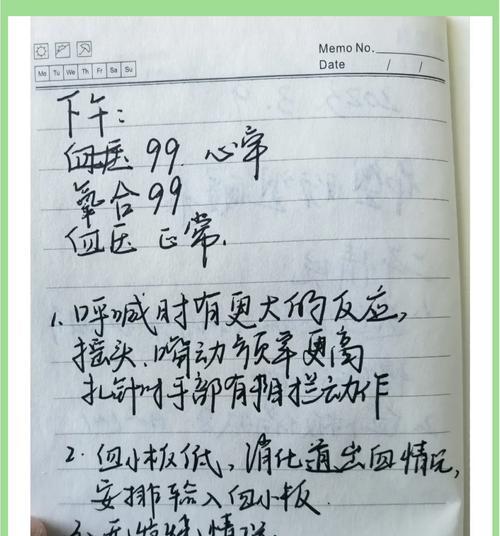 Memo No.
Mo Tu We Th Fr Sa Su
Date / /
下午:
血压 99 心率
氧合 99
血压 正常.
1. 呼喊时有更大的反应,
摇头、嘴动频率更高
扎针时手部有阻拦动作
2. 血小板低, 消化道出血情况,
安排输入血小板.
3. 无特殊情况